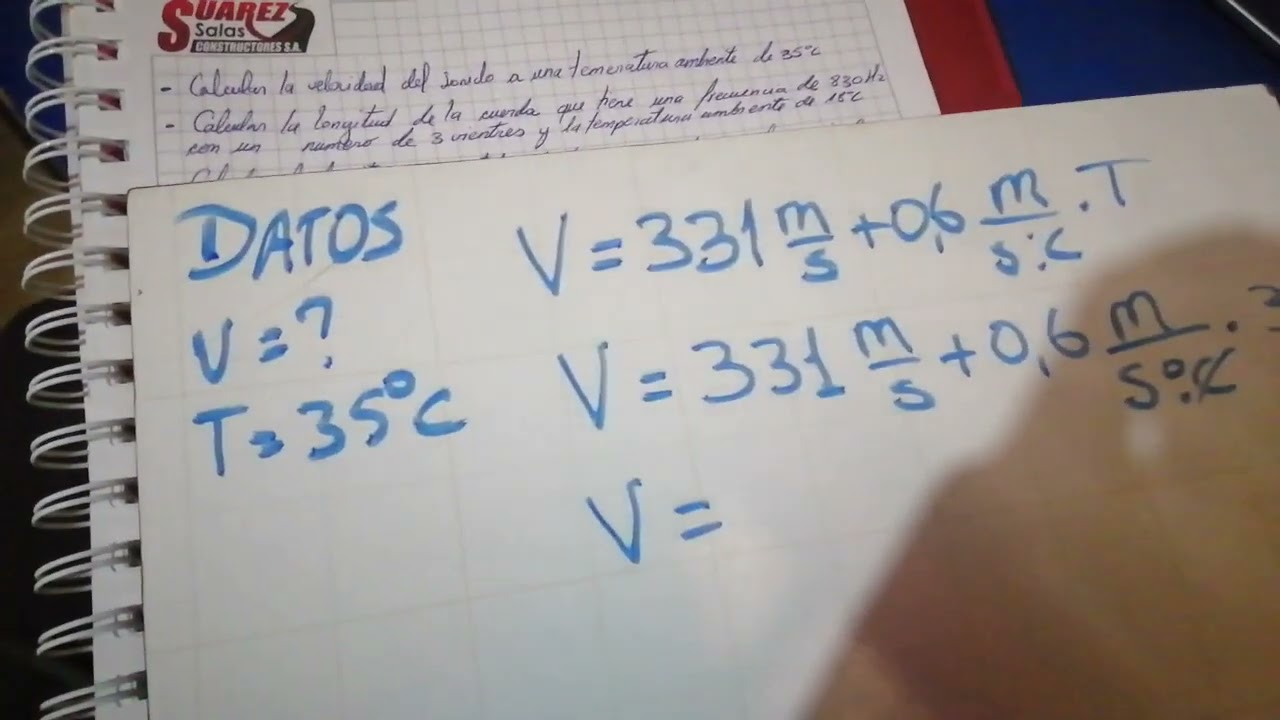 SUAREZ
Salas
CONSTRUCTORES S.A.
- Calcular la velocidad del sonido a una temeratura ambiente de 35°C
- Calcular la longitud de la cuerda que tiene una frecuencia de 830Hz
con un numero de 3 vientres y la temperatura ambiente de 18°C
DATOS
V = ?
T = 35°C
V = 331 m/s + 0,6 m/s.°C . T
V = 331 m/s + 0,6 m/s.°C .
V =